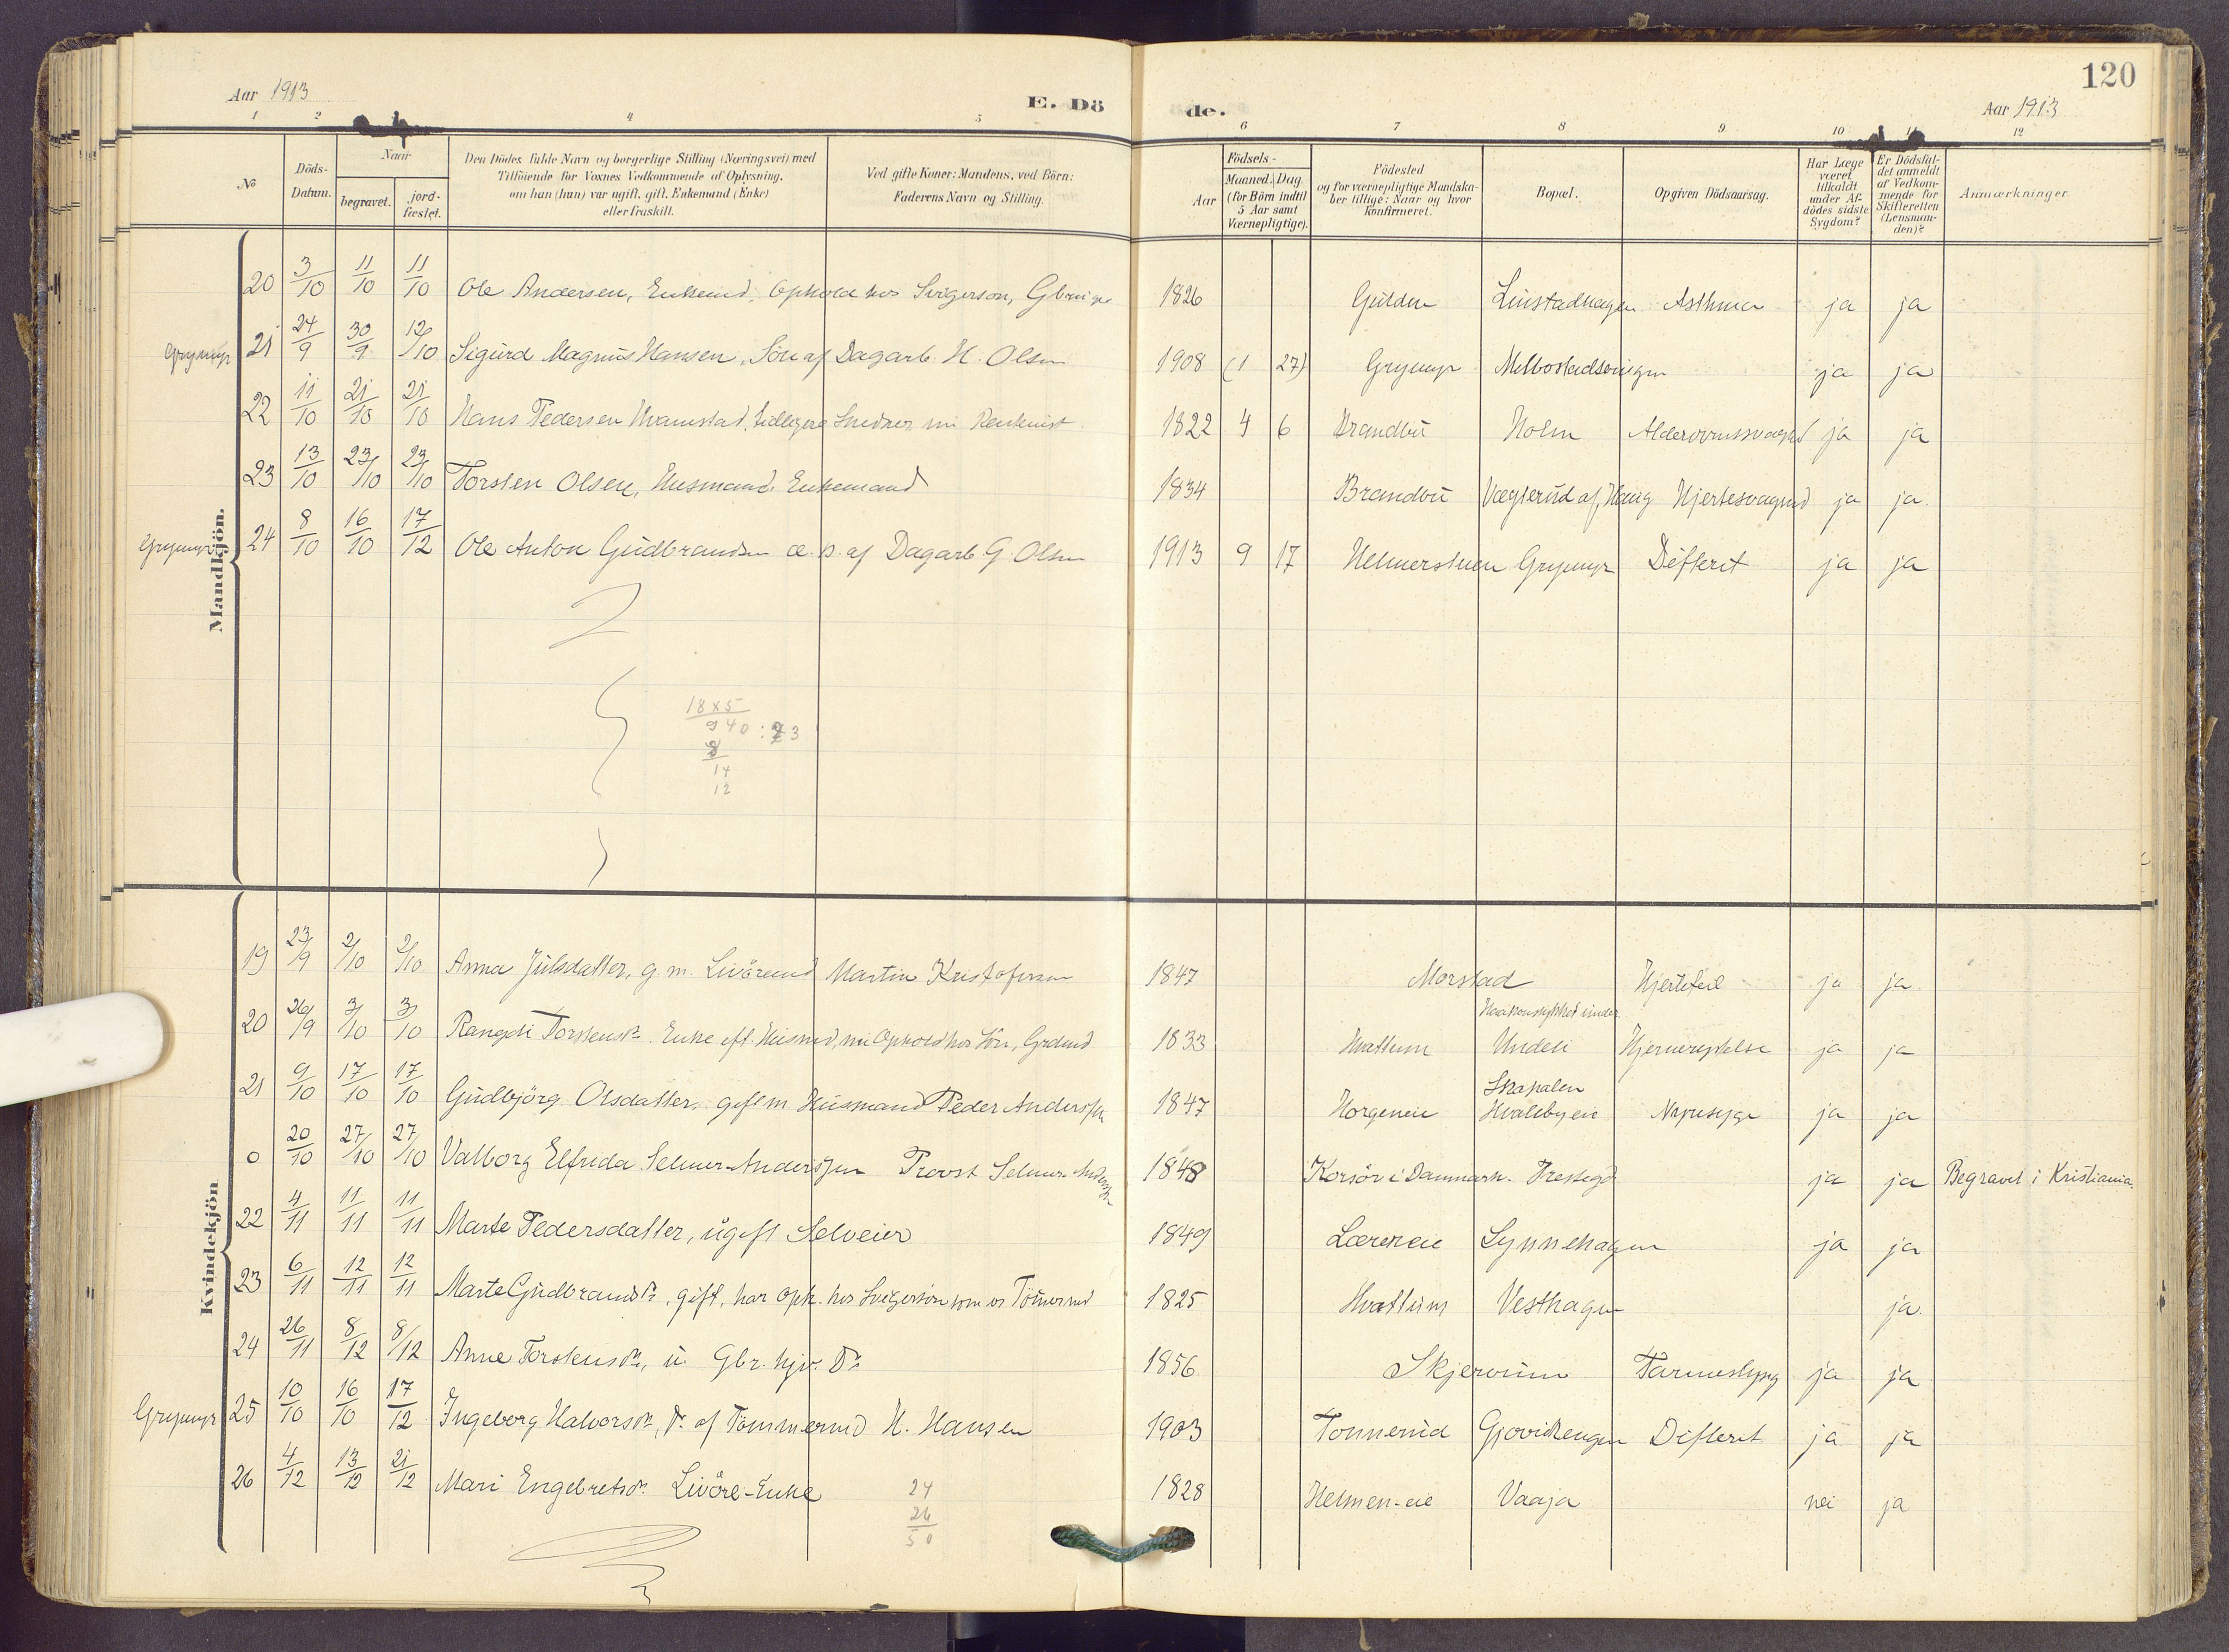 120
Aar 1913
E. Dö
de.
Aar 1913
1 2 4 5 6 7 8 9 10 11 12
No
Döds-Datum.
Naar
begravet.
jord-fæstet.
Den Dödes fulde Navn og borgerlige Stilling (Næringsvei) med
Tilföiende for Voxnes Vedkommende af Oplysning,
om han (hun) var ugift, gift, Enkemand (Enke)
eller fraskilt.
Ved gifte Koner: Mandens, ved Börn:
Faderens Navn og Stilling.
Födsels-
Aar
Maaned. Dag.
(for Börn indtil
5 Aar samt
Værnepligtige).
Födested
og for værnepligtige Mandska-
ber tillige: Naar og hvor
konfirmeret.
Bopæl.
Opgiven Dödsaarsag.
Har Læge
været
tilkaldt
under Af-
dödes sidste
Sygdom?
Er Dödsfal-
det anmeldt
af Vedkom-
mende for
Skifteretten
(Lensman-
den)?
Anmærkninger.
Mandkjön.
20 3/10 11/10 11/10 Ole Andersen, Enkemd, Ophold hos Svigersøn, 1826 Gulden Linstadhagen Asthma ja ja
Grymyr 21 24/9 30/9 12/10 Sigurd Magnus Hansen, Søn af Dagarb. H. Olsen 1908 (1 27) Grymyr ja ja
22 11/10 21/10 21/10 Hans Pedersen Hvamstad, tidligere Snedker nu 1822 4 6 Brandbu Holm ja ja
23 13/10 23/10 23/10 Torsten Olsen, Husmand, Enkemand 1834 Brandbu Vægterud af Haug Hjertesvaghed ja ja.
Grymyr 24 8/10 16/10 17/12 Ole Anton Gudbrandsen æ. s. af Dagarb G. Olsen 1913 9 17 Helmerstuen Grymyr Difterit ja ja
18 x 5
940 : 23
8
14
12
Kvindekjön
19 23/9 2/10 2/10 Anna Julsdatter, g. m. Livöremd Martin Kristofersen 1847 Morstad Hjertefeil ja ja
20 26/9 3/10 3/10 Rangdi Torstensdr. Enke eft. Husmd, nu Ophold hos Sön, Grdmd 1833 Hvattum Undeli ja ja
21 9/10 17/10 17/10 Gudbjörg Olsdatter, gift m Husmand Peder Andersen 1847 Horgeneie Skapalen Hvalebyeie Nyresyge ja ja
0 20/10 27/10 27/10 Valborg Elfrida Selmer-Anderssen Provst Selmer-Anderssen 1848 Korsör i Danmark. Prestegd ja ja Begravet i Kristiania.
22 4/11 11/11 11/11 Marte Pedersdatter, ugift Selveier 1849 Lynnehagen ja ja
23 6/11 12/11 12/11 Marte Gudbrandsdr., gift, har Oph. hos Svigersön som er Tömermd 1825 Hvattum Vesthagen ja.
24 26/11 8/12 8/12 Anne Torstensdr., u. Gbr. kjv. Dr. 1856 Skjervum ja ja
Grymyr 25 10/10 16/10 17/12 Ingeborg Halvorsdr., Dr. af Tömmermd H. Hansen 1903 Tonnerud Gjovikengen Difterit ja ja
26 4/12 13/12 21/12 Mari Engebretsdr. Livöre-Enke 1828 Helmen-eie Vaaja nei ja
24
26
50